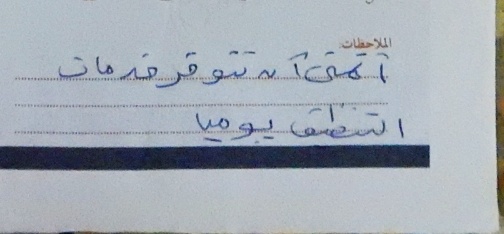 الملاحظات
أتمنى أن تتوفر خدمات
التنظيف يوميا